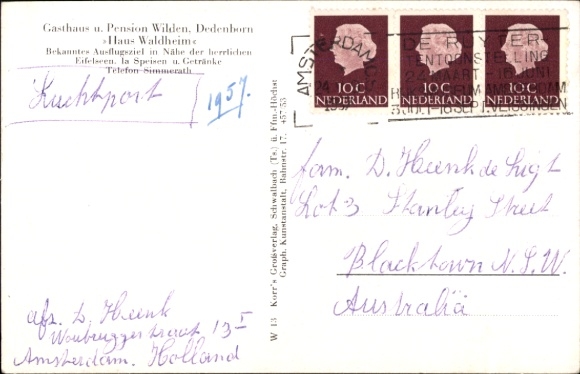 Gasthaus u. Pension Wilden, Dedenborn
»Haus Waldheim«
Bekanntes Ausflugsziel in Nähe der herrlichen
Eifelseen. Ia Speisen u. Getränke
Telefon Simmerath
Luchtpost
1957
10C 10C 10C
NEDERLAND NEDERLAND NEDERLAND
AMSTERDAM
DE RUYTER
TENTOONSTELLING
24 MAART - 16 JUNI
RIJKSMUSEUM AMSTERDAM
SEPT. VLISSINGEN
W 13 Korr's Großverlag, Schwalbach (Ts.) ü. Ffm.-Höchst
Graph. Kunstanstalt, Bahnstr. 17. +457/53
fam. D. Heenk de Ligt
Lot 3 Stanley Street
Blacktown N.S.W.
Australië
afz. D. Heenk
13 I
Amsterdam. Holland